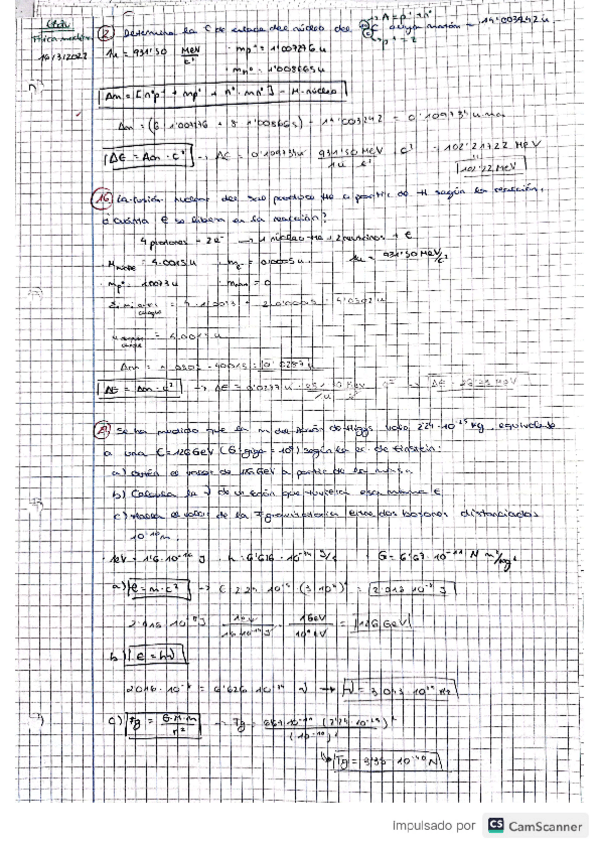 Física nuclear
14/3/2022
② Determina la E de enlace del núcleo del C cuya masa = 14'003242 u.
A = p⁺ + n⁰
1u = 931'50 MeV/c² · mp⁺ = 1'007276 u
· mn⁰ = 1'008665 u
Δm = [nºp⁺ · mp⁺ + n⁰ · mn⁰] - M núcleo
Δm = (6 · 1'007276 + 8 · 1'008665) - 14'003242 = 0'109734 u
ΔE = Δm · c² → ΔE = 0'109734 u · 931'50 MeV / 1u c² · c² → 102'21722 MeV
102'22 MeV
⑯ La fusión nuclear del sol produce He a partir de H según la reacción,
¿cuánta E se libera en la reacción?
4 protones + 2e⁻ → 1 núcleo He + 2 neutrinos + E
M núcleo = 4'0015 u · me = 0'0005 u · 1u = 931'50 MeV/c²
· mp⁺ = 1'0073 u · = 0
= 4 · 1'0073 + 2 · 0'0005 = 4'0302 u
= 4'0015 u
Δm = 4'0302 - 4'0015 = 0'0287 u
ΔE = Δm · c² → ΔE = 0'0287 u · MeV / 1u c² · c² → ΔE =
Se ha medido que la m del bosón de Higgs vale 2'24 · 10⁻²⁵ kg, equivalente
a una E = 126 GeV (G: giga = 10⁹) según la ec. de Einstein:
a) Obtén el valor de 126 GeV a partir de la masa.
b) Calcula la ν de un fotón que tuviera esa misma E
c) Halla el valor de la F gravitatoria entre dos bosones distanciados
10⁻¹⁰ m.
· 1eV = 1'6 · 10⁻¹⁹ J · h = 6'626 · 10⁻³⁴ J/s · G = 6'67 · 10⁻¹¹ N m²/kg²
a) E = m · c² → E = 2'24 · 10⁻²⁵ · (3 · 10⁸)² = 2'016 · 10⁻⁸ J
2'016 · 10⁻⁸ J · 1eV / 1'6 · 10⁻¹⁹ J · 1GeV / 10⁹ eV = 126 GeV
b) E = hν
2'016 · 10⁻⁸ = 6'626 · 10⁻³⁴ · ν → ν = 3'043 · 10²⁵ Hz
c) Fg = G·M·m / r² → Fg = 6'67 · 10⁻¹¹ · (2'24 · 10⁻²⁵)² / (10⁻¹⁰)²
Fg = 3'35 · 10⁻⁴⁰ N
Impulsado por CS CamScanner